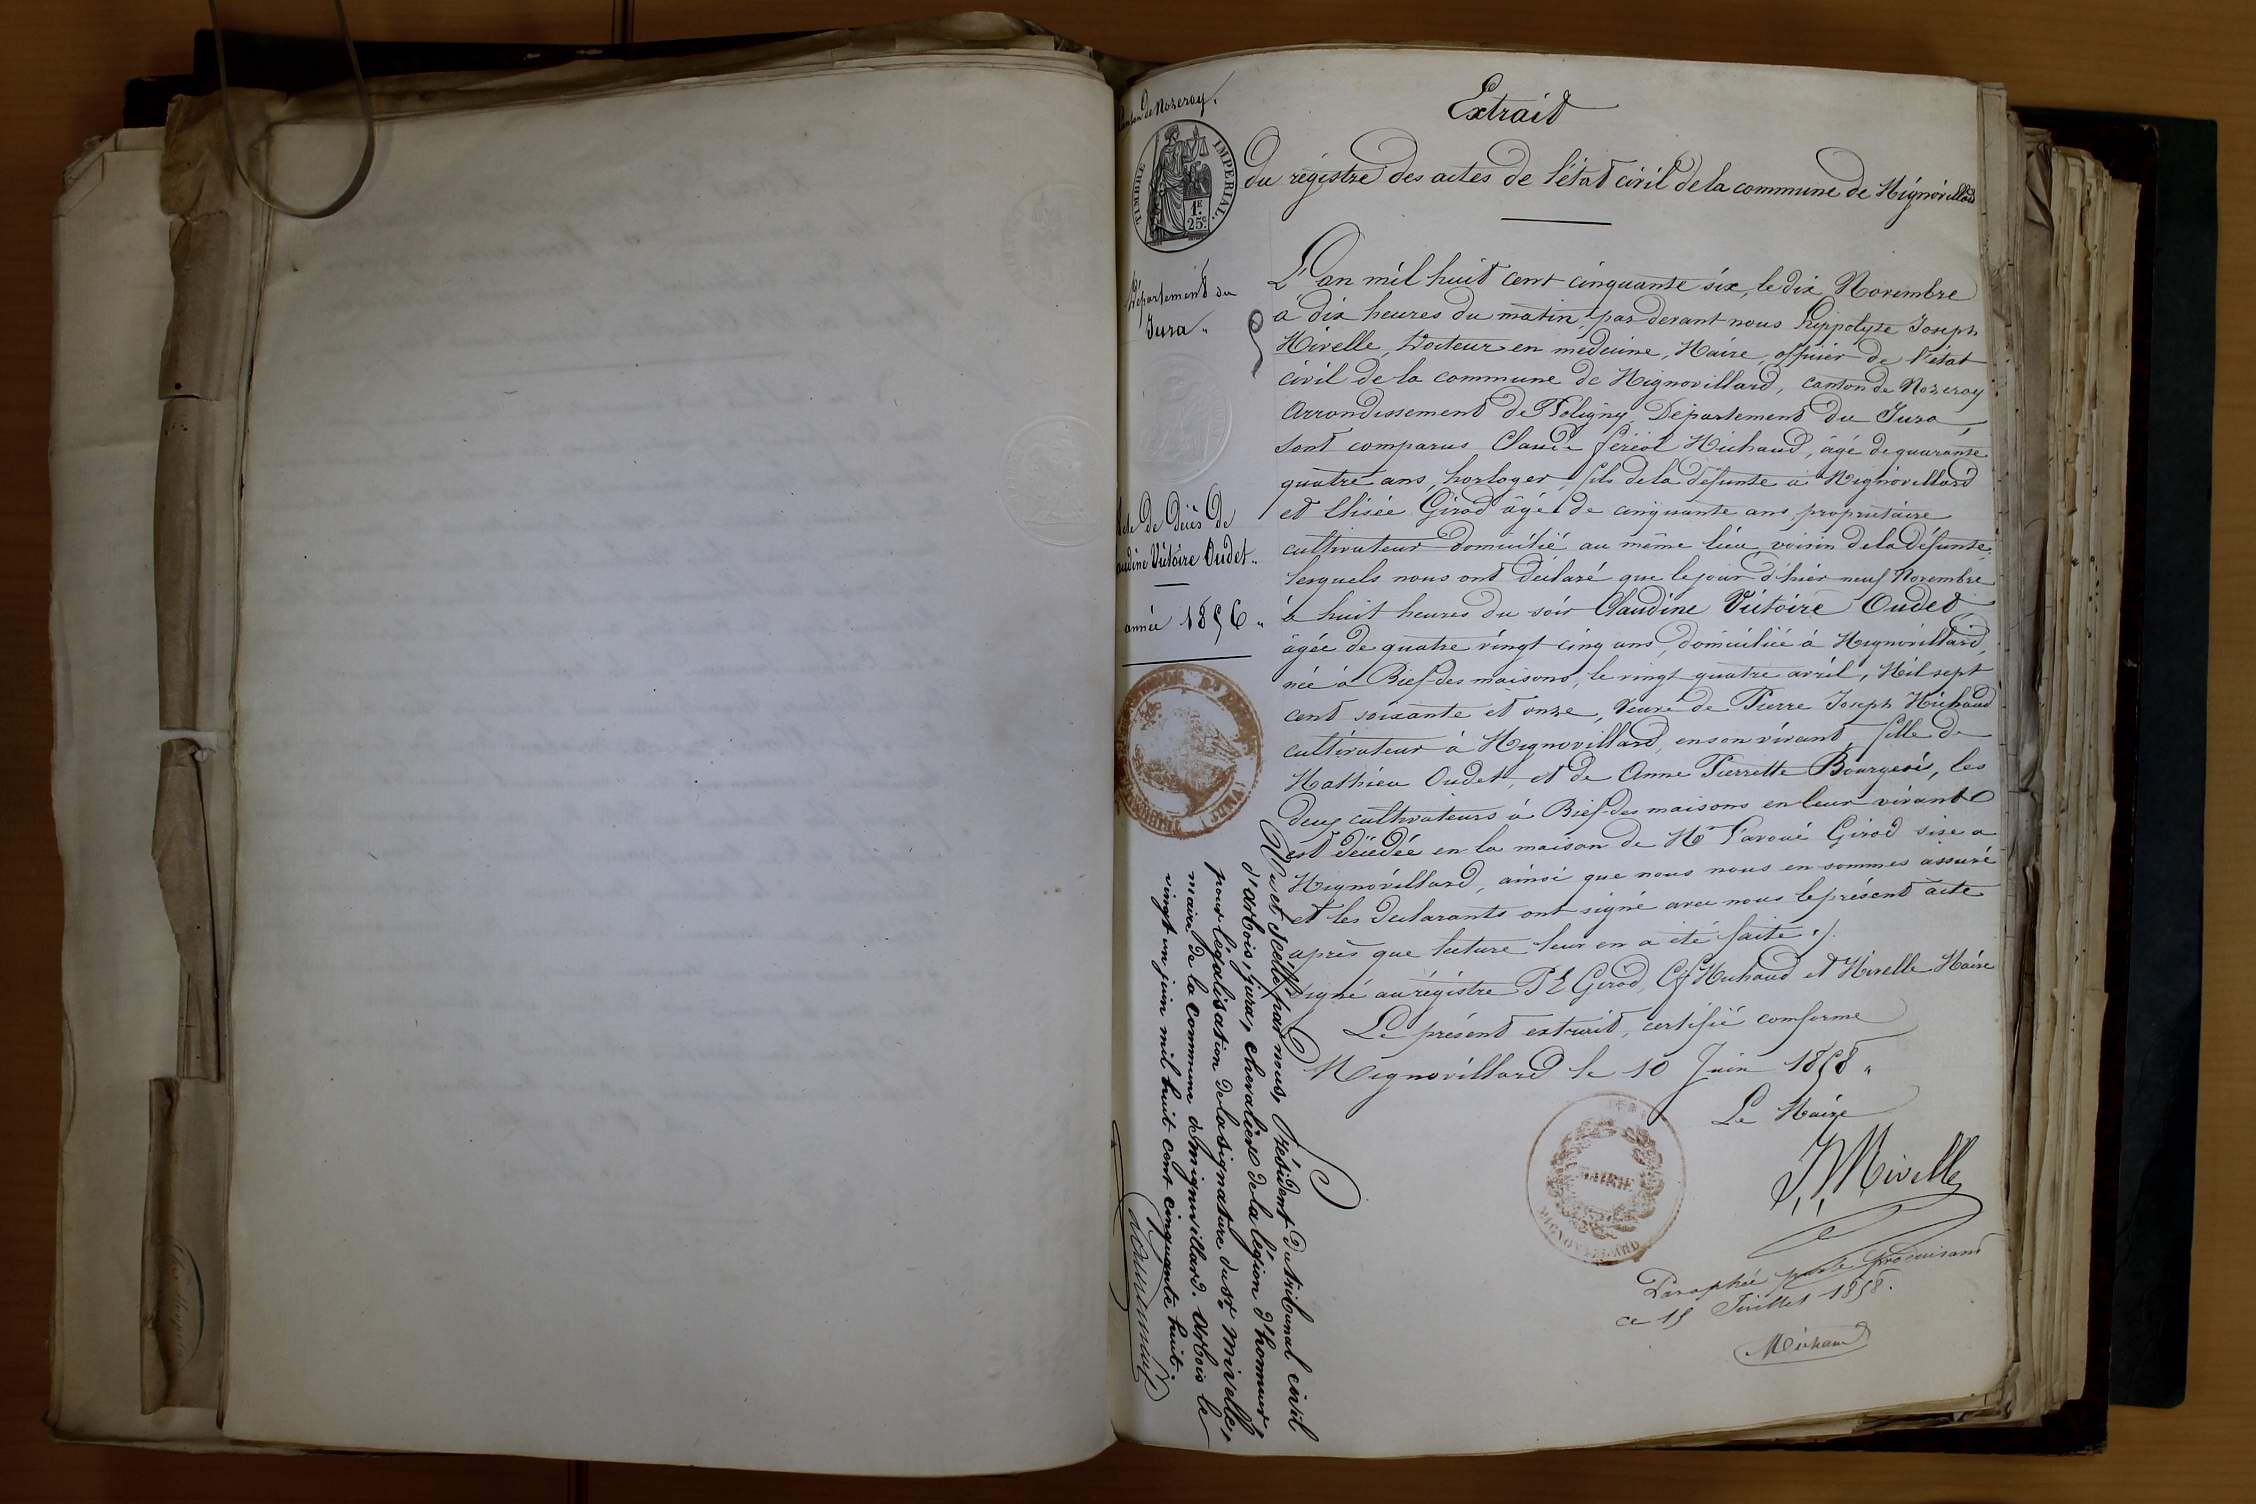 Canton de Nozeroy.
TIMBRE IMPERIAL.
1F.
25c.
Département du
Jura "
Acte de Décès de
Claudine Victoire Oudet "
année 1856 "
Extrait
du régistre des actes de l'état civil de la commune de Mignovillard
L'an mil huit cent cinquante six, le dix Novembre
à dix heures du matin, par devant nous hippolyte Joseph
Mivelle, Docteur en médecine, Maire, officier de l'état
civil de la commune de Mignovillard, canton de Nozeroy
arrondissement de Poligny Département du Jura,
sont comparus Claude feréol Michaud, âgé de quarante
quatre ans, horloger, fils de la défunte à Mignovillard
et Elisée Girod âgé de cinquante ans, propriétaire
cultivateur domicilié au même lieu, voisin de la défunte,
lesquels nous ont déclaré que le jour d'hier neuf Novembre
à huit heures du soir Claudine Victoire Oudet
âgée de quatre vingt cinq ans, domiciliée à Mignovillard,
née à Bief-des maisons, le vingt quatre avril, Mil sept
cent soixante et onze, Veuve de Pierre Joseph Michaud
cultivateur à Mignovillard, en son vivant, fille de
Mathieu Oudet, et de Anne Pierrette Bourgeois, les
deux cultivateurs à Bief-des maisons en leur vivant
est décédée en la maison de Mr l'avoué Girod sise à
Mignovillard, ainsi que nous nous en sommes assuré
et les déclarants ont signé avec nous le présent acte
après que lecture leur en a été faite ./.
Signé au régistre P E Girod, Cf Michaud et Mivelle Maire
Le présent extrait, certifié conforme
Mignovillard le 10 Juin 1858 "
Le Maire
MAIRIE
MIGNOVILLARD
Mivelle
Paraphé par le produisant
ce 15 Juillet 1858.
Michaud
Vu et Scellé par nous, Président du tribunal civil
d'arbois, jura, chevalier de la légion d'honneur,
pour légalisation de la signature du sr mivelle,
maire de la commune de mignovillard. arbois le
vingt un juin mil huit cent cinquante huit.